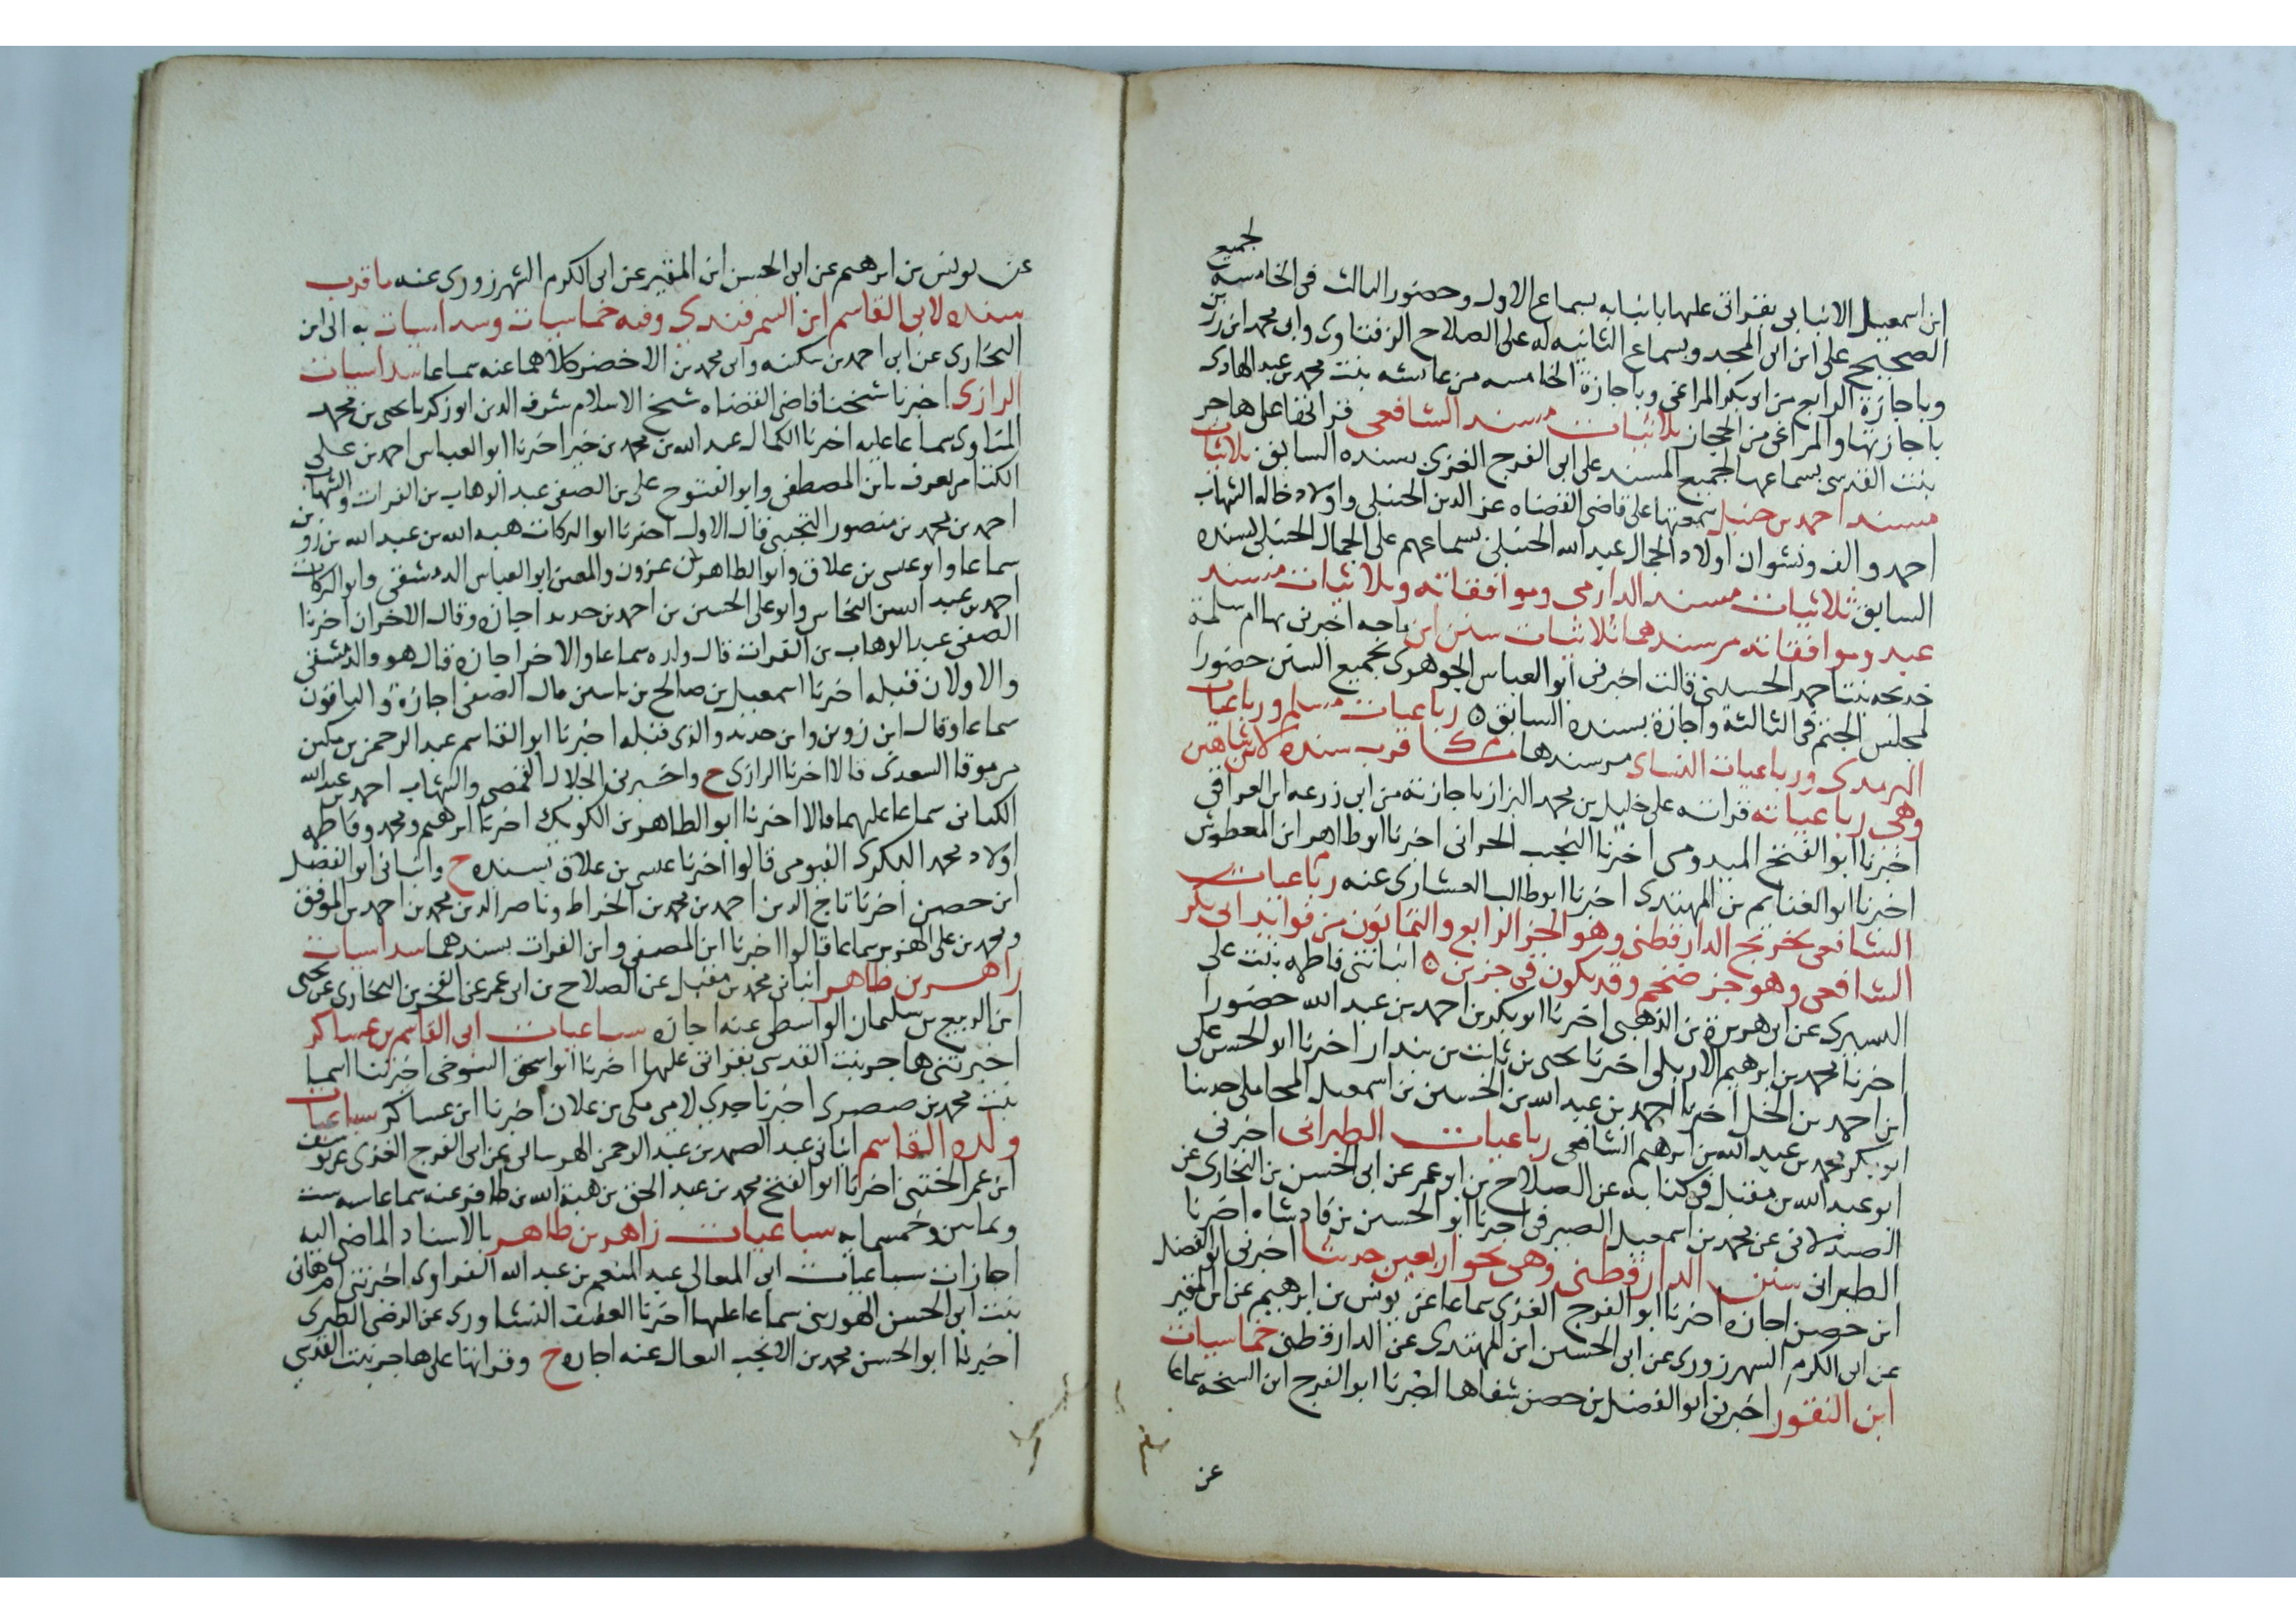 لجميع
ابن اسمعيل الانبابى بقراتى عليها بانبابه بسماع الاول وحضور الثالث فى الخامسه
الصحيح على ابن ابى المجد وبسماع الثانيه له على الصلاح الزفتاوى وابى محمد ابن رزين
وباجازة الرابع من ابى بكر المراغى وباجازة الخامسه من عائشه بنت محمد بن عبد الهادى
باجازتها والمراغى من الحجار ثلاثيات مسند الشافعى قراتها على هاجر
بنت القدسى بسماعها لجميع المسند على ابى الفرج الغزى بسنده السابق ثلاثيات
مسند احمد بن حنبل سمعتها على قاضى القضاه عز الدين الحنبلى واولاد خاله الشهاب
احمد والف ونشوان اولاد الجمال عبد الله الحنبلى بسماعهم على الجمال الحنبلى بسنده
السابق ثلاثيات مسند الدارمى وموافقاته وثلاثيات مسند
عبد وموافقاته مر سندهما ثلاثيات سنن ابن ماجه اخبرنى بها ام سلمة
خديجه بنت احمد الحسينى قالت اخبرنى ابو العباس الجوهرى بجميع السنن حضورا
لمجلس الختم فى الثالثة واجازة بسنده السابق ٥ رباعيات مسلم ورباعيات
الترمدى ورباعيات النساى مر سندها قرب سنده لابن شاهين
وهى رباعياته قراته على خليل بن محمد البزاز باجازته من ابى زرعه ابن العراقى
اخبرنا ابو الفتح الميدومى اخبرنا النجيب الحرانى اخبرنا ابو طاهر ابن المعطوش
اخبرنا ابو الغنايم بن المهتدى اخبرنا ابو طالب العشارى عنه رباعيات
الشافعى تخريج الدارقطنى وهو الجز الرابع والثمانون من فوايد ابى بكر
الشافعى وهو جز ضخم وقد يكون فى جزين ٥ انباتنى فاطمه بنت على
اليسيرى عن ابى هريرة بن الذهبى اخبرنا ابو بكر بن احمد بن عبد الله حضورا
اخبرنا محمد بن ابرهيم الاربلى اخبرنا يحيى بن ثابت بن بندار اخبرنا ابو الحسن على
ابن احمد بن الخل اخبرنا احمد بن عبد الله بن الحسين بن اسمعيل المحاملى حدثنا
ابو بكر محمد بن عبد الله بن ابرهيم الشافعى رباعيات الطبرانى اخبرنى
ابو عبد الله بن مقبل فى كتابه عن الصلاح بن ابو عمر عن ابى الحسن بن البخارى عن
الصيدلانى عن محمد بن اسمعيل الصيرفى اخبرنا ابو الحسين بن فادشاه اخبرنا
الطبرانى سنن الدارقطنى وهى نحو اربعين حديثا اخبرنى ابو الفضل
ابن حصين اجازه اخبرنا ابو الفرج الغزى سماعا عن يونس بن ابرهيم عن ابن المقير
عن ابى الكرم الشهرزورى عن ابى الحسين ابن المهتدى عن الدارقطنى خماسيات
ابن النقور اخبرنى ابو الفضل بن حصن شفاها اخبرنا ابو الفرج ابن الشيخه سماعا
عن
عن يونس بن ابرهيم عن ابى الحسن ابن المقير عن ابى الكرم الشهرزورى عنه ما قرب
سنده لابى القاسم ابن السمرقندى وفيه خماسيات وسداسيات به الى ابن
البخارى عن ابى احمد بن سكينه وابن محمد بن الاخضر كلاهما عنه سماعا سداسيات
الرازى اخبرنا شيخنا قاضى القضاه شيخ الاسلام شرف الدين ابو زكريا يحيى بن محمد
المناوى سماعا عليه اخبرنا الكمال عبد الله بن محمد بن خير اخبرنا ابو العباس احمد بن على
الكتامى يعرف بابن المصطفى وابو الفتوح على بن الصفى عبد الوهاب بن الفرات والشهاب
احمد بن محمد بن منصور التجيبى قال الاول اخبرنا ابو البركات هبه الله بن عبد الله بن زوين
سماعا وابو عيسى بن علاق وابو الطاهر بن عزون والمعين ابو العباس الدمشقى وابو البركات
احمد بن عبد الله بن النحاس وابو على الحسين بن احمد بن حديد اجازه وقال الاخران اخبرنا
الصفى عبد الوهاب بن الفرات قال ولده سماعا والاخر اجازه قال هو والدمشقى
والاولان قبله اخبرنا اسمعيل بن صالح بن ياسين قال الصفى اجازة والباقون
سماعا وقال ابن زوين وابن حديد والذى قبله اخبرنا ابو القاسم عبد الرحمن بن مكى بن
موقا السعدى قالا اخبرنا الرازى ح واخبرنى الجلال القمصى والشهاب احمد بن عبد الله
الكنانى سماعا عليهما قالا اخبرنا ابو الطاهر بن الكويك اخبرنا ابرهيم ومحمد وفاطمه
اولاد محمد البكرى الفيومى قالوا اخبرنا عيسى بن علاق بسنده ح وانبانى ابو الفضل
ابن حصين اخبرنا تاج الدين احمد بن محمد بن الخراط وناصر الدين محمد بن احمد بن الموفق
ومحمد بن على الهزبر سماعا قالوا اخبرنا ابن المصفى وابن الفرات بسندهما سداسيات
زاهر بن طاهر انبانى محمد بن مقبل عن الصلاح بن ابى عمر عن الفخر بن البخارى عن يحيى
ابن الربيع بن سليمان الواسطى عنه اجازه سباعيات ابى القاسم بن عساكر
اخبرتنى هاجر بنت القدسى بقراتى عليها اخبرنا ابو اسحق التنوخى اخبرتنا اسما
بنت محمد بن صصرى اخبرنا جدى لامى مكى بن علان اخبرنا ابن عساكر سباعيات
ولده القاسم انبانى عبد الصمد بن عبد الرحمن الهرسانى عن ابى الفرج الغزى عن يوسف
ابن عمر الختنى اخبرنا ابو الفتح محمد بن عبد الحق بن هبة الله بن ظافر عنه سماعا سنه ست
وثمانين وخمسمايه سباعيات زاهر بن طاهر بالاسناد الماضى اليه
اجازات سباعيات ابى المعالى عبد المنعم بن عبد الله الفراوى اخبرتنى ام هانى
بنت ابى الحسن الهورينى سماعا عليها اخبرنا العفيف النشاورى عن الرضى الطبرى
اخبرنا ابو الحسن محمد بن الانجب النعال عنه اجازه ح وقراتها على هاجر بنت القدسى